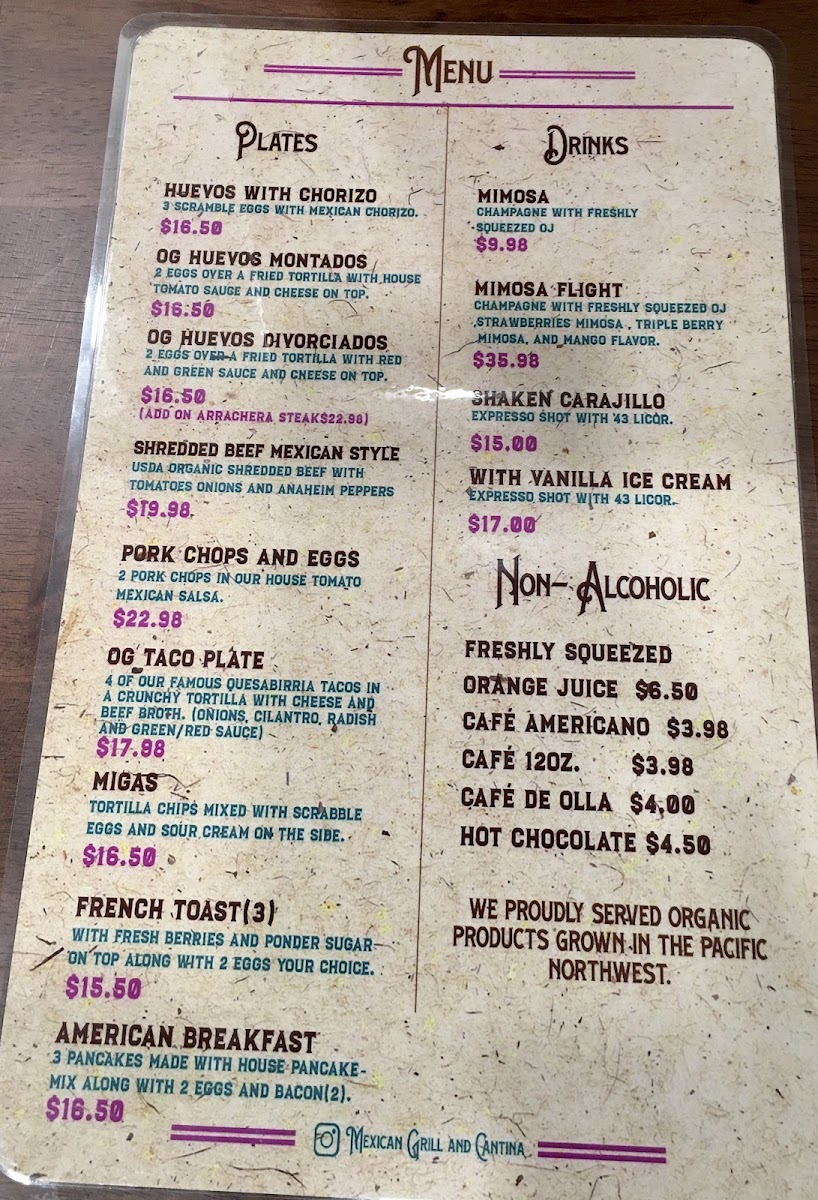 MENU
PLATES
HUEVOS WITH CHORIZO
3 SCRAMBLE EGGS WITH MEXICAN CHORIZO.
$16.50
OG HUEVOS MONTADOS
2 EGGS OVER A FRIED TORTILLA WITH HOUSE
TOMATO SAUGE AND CHEESE ON TOP.
$16.50
OG HUEVOS DIVORCIADOS
2 EGGS OVER A FRIED TORTILLA WITH RED
AND GREEN SAUCE AND CHEESE ON TOP.
$16.50
(ADD ON ARRACHERA STEAK$22.98)
SHREDDED BEEF MEXICAN STYLE
USDA ORGANIC SHREDDED BEEF WITH
TOMATOES ONIONS AND ANAHEIM PEPPERS
$19.98
PORK CHOPS AND EGGS
2 PORK CHOPS IN OUR HOUSE TOMATO
MEXICAN SALSA.
$22.98
OG TACO PLATE
4 OF OUR FAMOUS QUESABIRRIA TACOS IN
A CRUNCHY TORTILLA WITH CHEESE AND
BEEF BROTH. (ONIONS, CILANTRO, RADISH
AND GREEN/RED SAUCE)
$17.98
MIGAS
TORTILLA CHIPS MIXED WITH SCRABBLE
EGGS AND SOUR CREAM ON THE SIDE.
$16.50
FRENCH TOAST(3)
WITH FRESH BERRIES AND PONDER SUGAR
ON TOP ALONG WITH 2 EGGS YOUR CHOICE.
$15.50
AMERICAN BREAKFAST
3 PANCAKES MADE WITH HOUSE PANCAKE-
MIX ALONG WITH 2 EGGS AND BACON(2).
$16.50
DRINKS
MIMOSA
CHAMPAGNE WITH FRESHLY
SQUEEZED OJ
$9.98
MIMOSA FLIGHT
CHAMPAGNE WITH FRESHLY SQUEEZED OJ
,STRAWBERRIES MIMOSA , TRIPLE BERRY
MIMOSA, AND MANGO FLAVOR.
$35.98
SHAKEN CARAJILLO
EXPRESSO SHOT WITH 43 LICOR.
$15.00
WITH VANILLA ICE CREAM
EXPRESSO SHOT WITH 43 LICOR.
$17.00
NON- ALCOHOLIC
FRESHLY SQUEEZED
ORANGE JUICE $6.50
CAFÉ AMERICANO $3.98
CAFÉ 12OZ. $3.98
CAFÉ DE OLLA $4,00
HOT CHOCOLATE $4.50
WE PROUDLY SERVED ORGANIC
PRODUCTS GROWN IN THE PACIFIC
NORTHWEST.
MEXICAN GRILL AND CANTINA